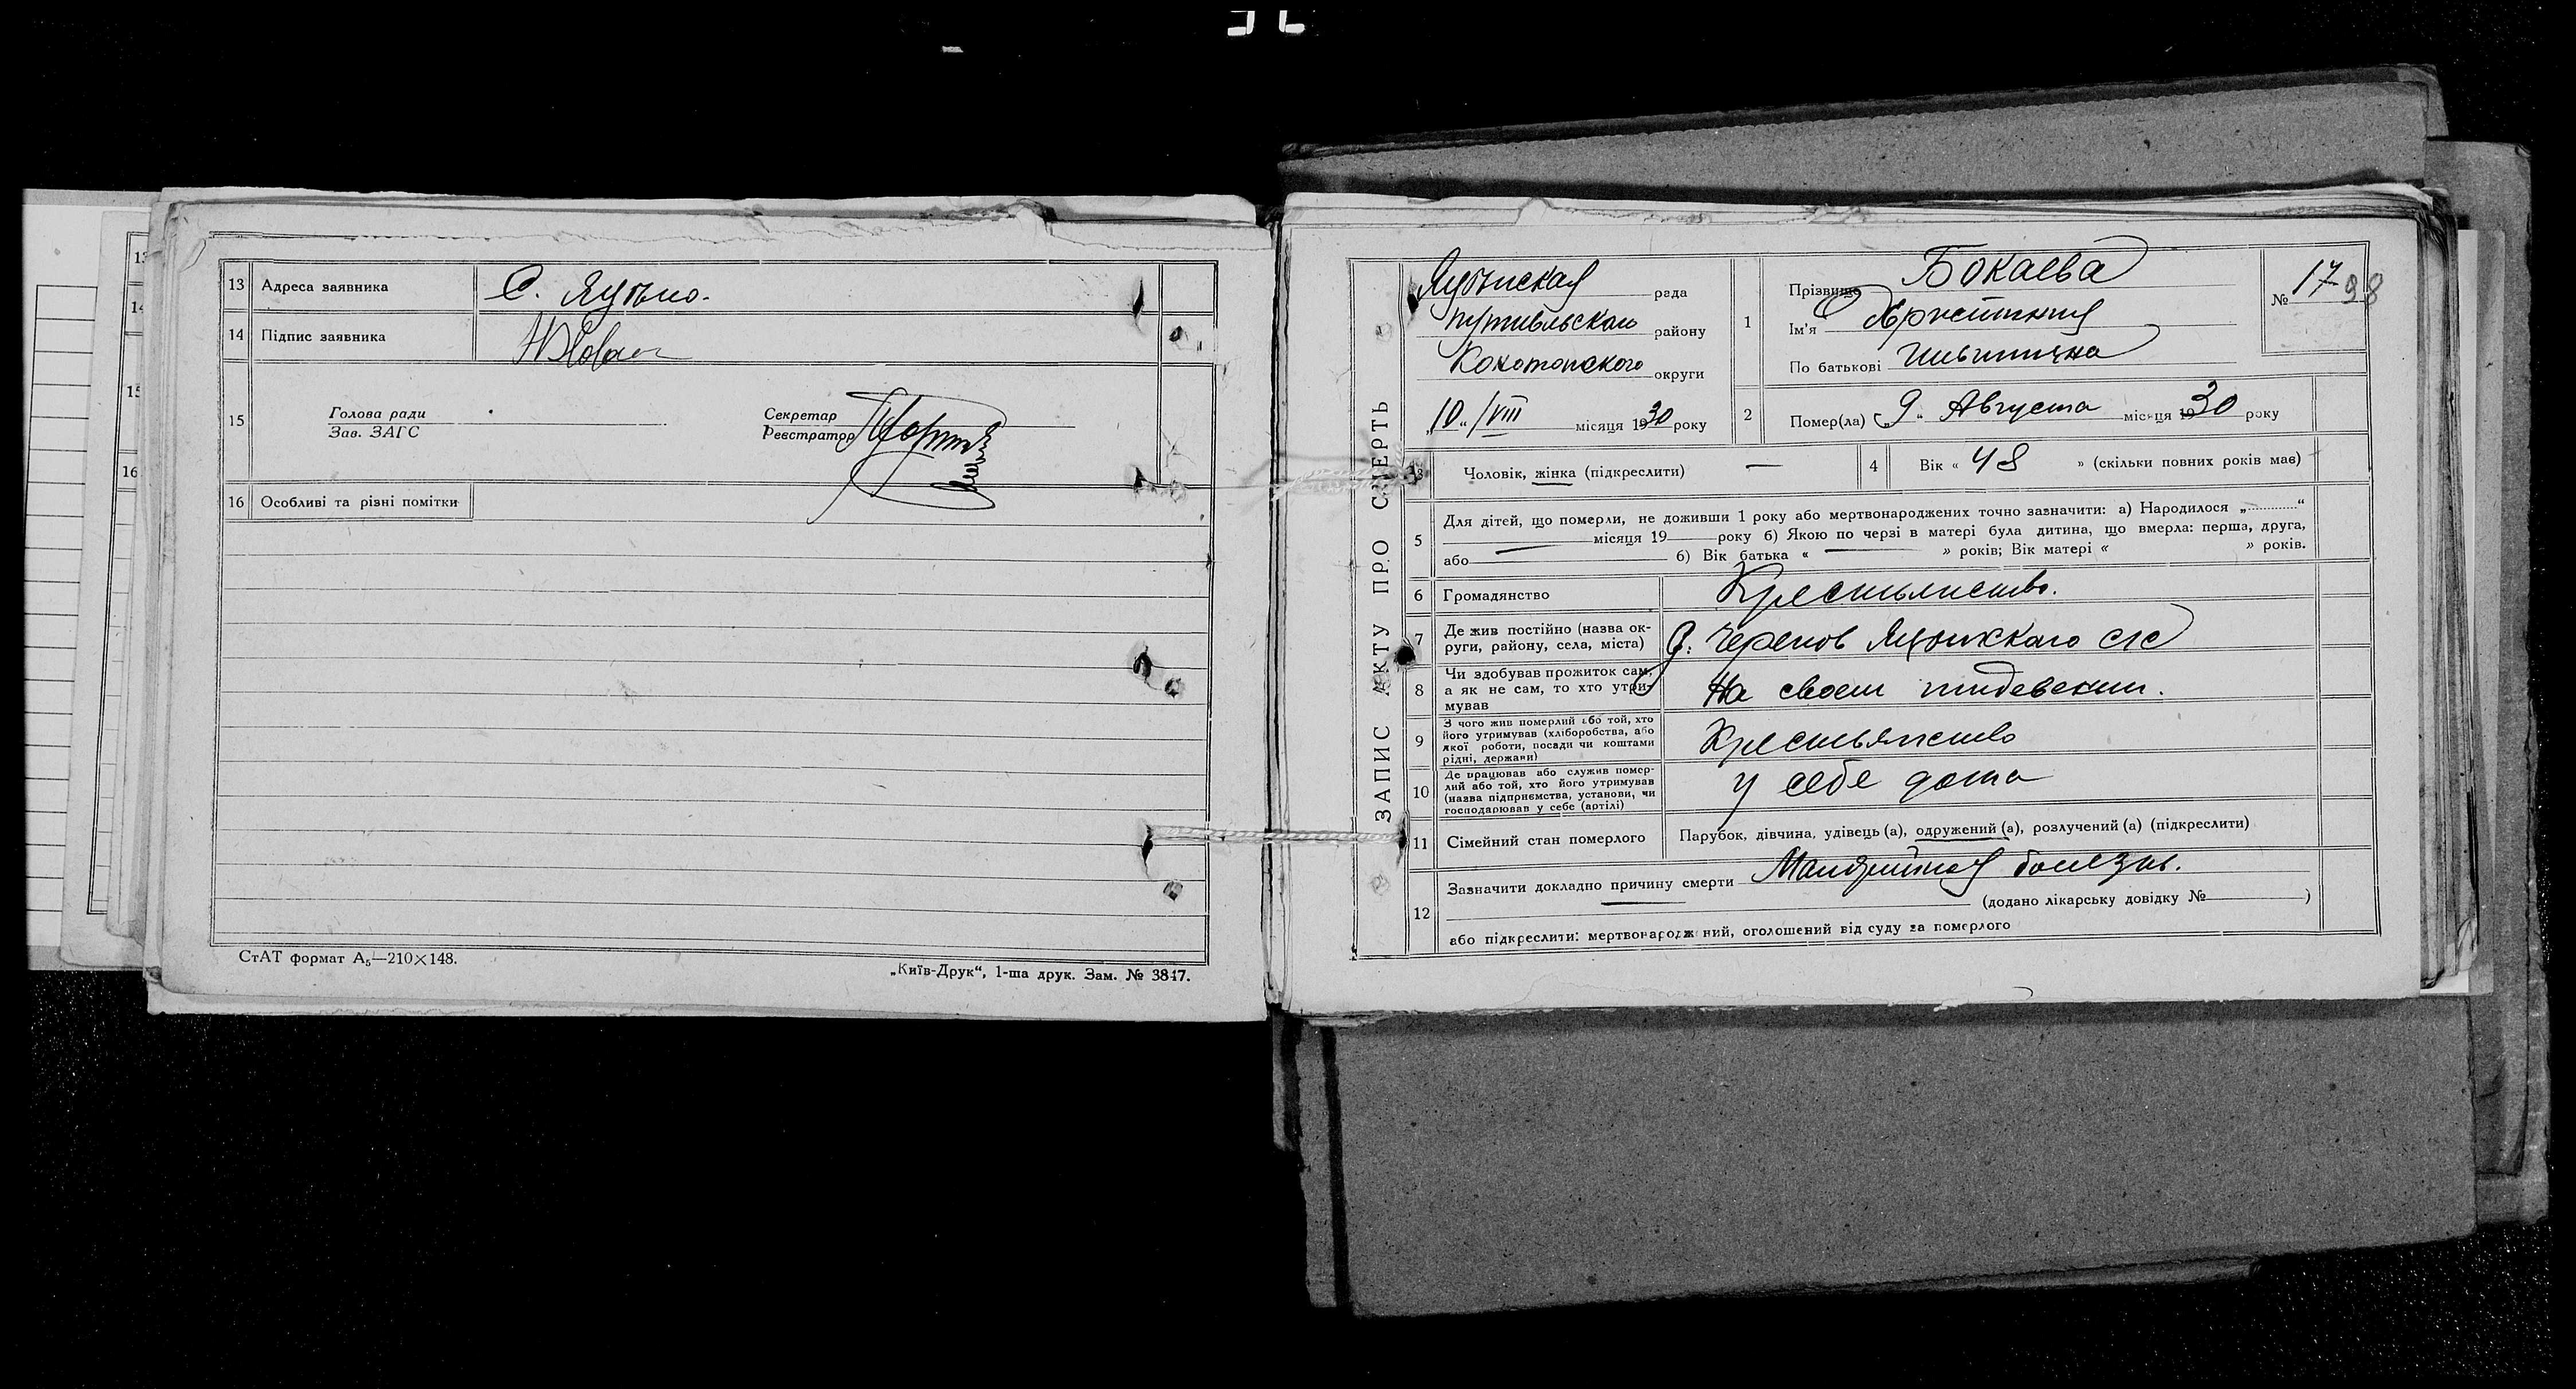 13 Адреса заявника С. Яцыно.
14 Підпис заявника
15 Голова ради
Зав. ЗАГС
Секретар
Реєстратор
16 Особливі та різні помітки
СтАТ формат А₅—210×148.
„Київ-Друк“, 1-ша друк. Зам. № 3847.
ЗАПИС АКТУ ПРО СМЕРТЬ
Яцынская рада
Путивльскаго району
Конотопского округи
„10“ /VIII місяця 1930 року
1 Прізвище Бокаева
Ім'я Христиния
По батькові
№ 17
98
2 Помер(ла) „9“ Августа місяця 1930 року
3 Чоловік, жінка (підкреслити) —
4 Вік « 48 » (скільки повних років має)
5 Для дітей, що померли, не доживши 1 року або мертвонароджених точно зазначити: а) Народилося „..........“
місяця 19 року б) Якою по черзі в матері була дитина, що вмерла: перша, друга,
або б) Вік батька « » років; Вік матері « » років.
6 Громадянство Крестьянство.
7 Де жив постійно (назва ок-
руги, району, села, міста) д. Черепов Яцынскаго с/с
8 Чи здобував прожиток сам,
а як не сам, то хто утри-
мував На своем иждевении.
9 З чого жив померлий або той, хто
його утримував (хліборобства, або
якої роботи, посади чи коштами
рідні, держави) Крестьянство
10 Де працював або служив помер-
лий або той, хто його утримував
(назва підприємства, установи, чи
господарював у себе (артілі) У себе дома
11 Сімейний стан померлого Парубок, дівчина, удівець (а), одружений (а), розлучений (а) (підкреслити)
12 Зазначити докладно причину смерти болезнь.
(додано лікарську довідку № )
або підкреслити: мертвонароджений, оголошений від суду за померлого